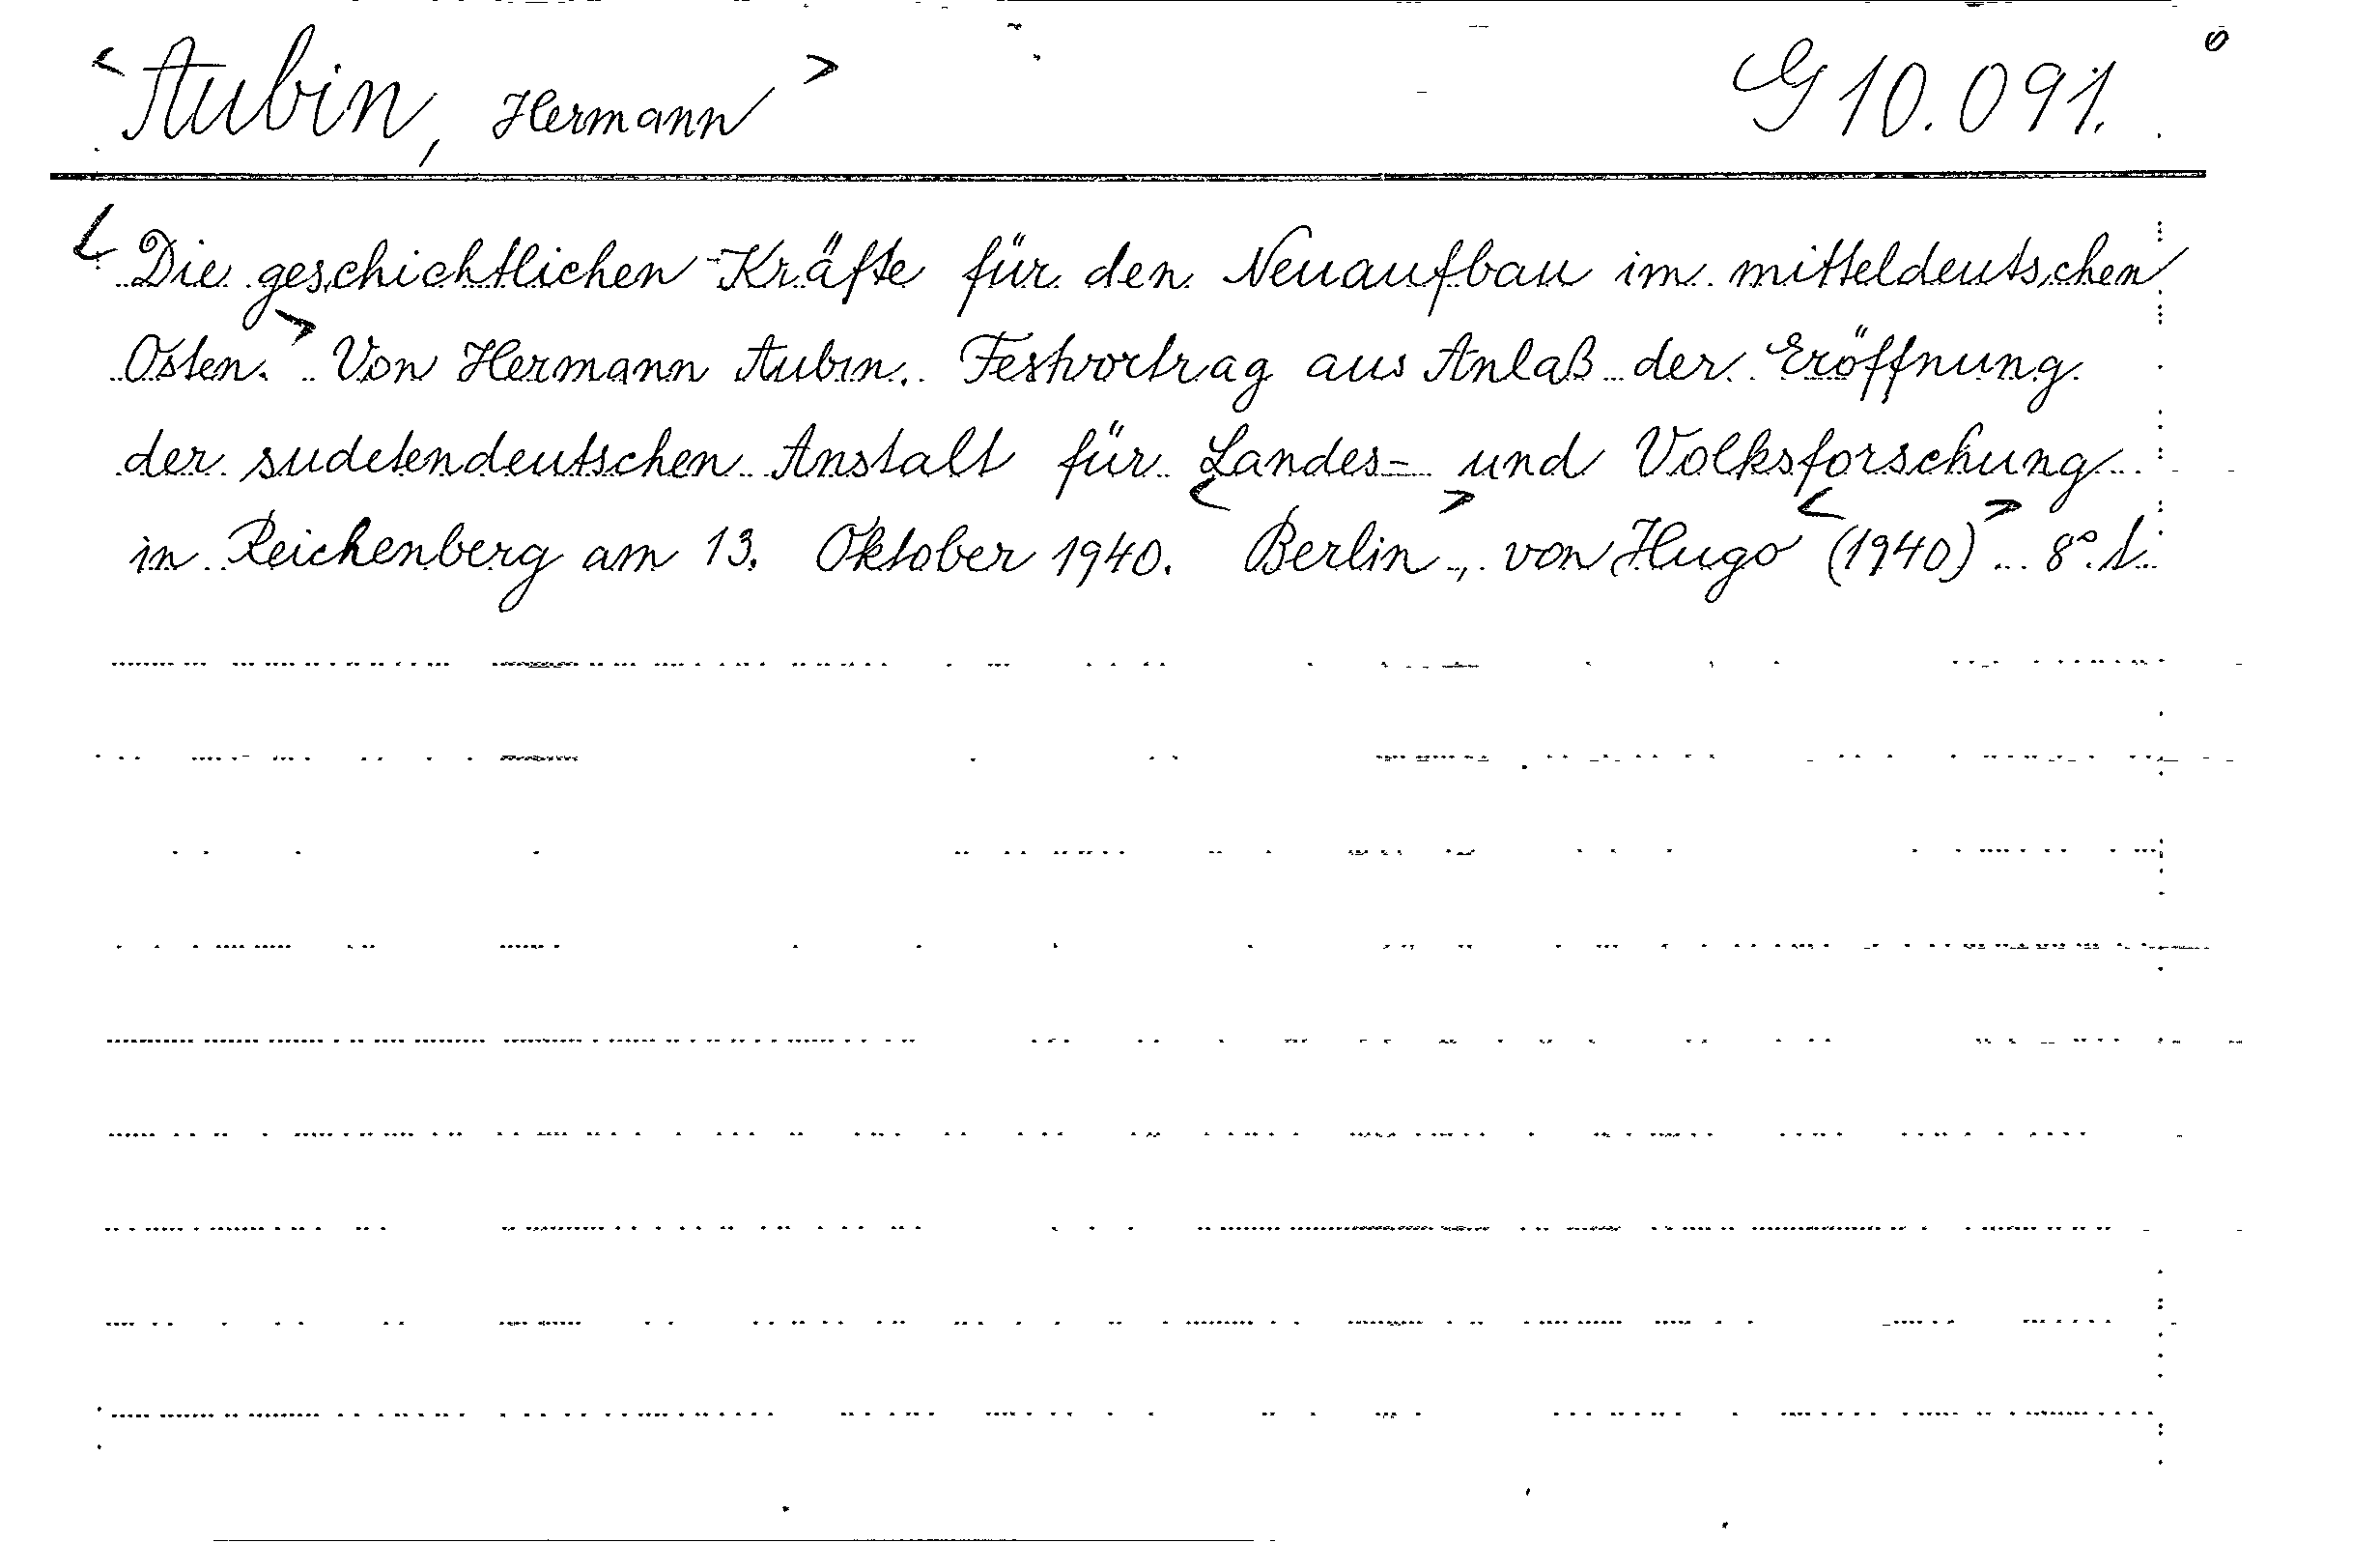 <Aubin, Hermann> G 10.091.
<Die geschichtlichen Kräfte für den Neuaufbau im mitteldeutschen
Osten.> Von Hermann Aubin. Festvortrag aus Anlaß der Eröffnung
der sudetendeutschen Anstalt für Landes- und Volksforschung
in Reichenberg am 13. Oktober 1940. <Berlin>, von Hugo <(1940)> 8°.